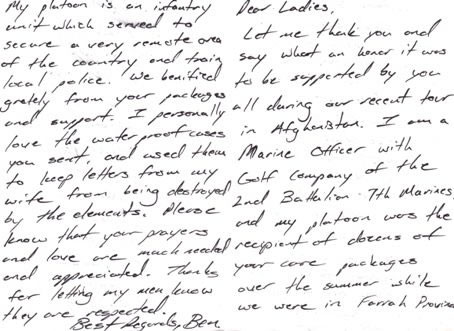 Dear Ladies,
Let me thank you and
say what an honer it was
to be supported by you
all during our recent tour
in Afghanistan. I am a
Marine Officer with
Golf Company of the
2nd Battalion 7th Marines
and my platoon was the
recipient of dozens of
your care packages
over the summer while
we were in Farrah Province
My platoon is an infantry
unit which served to
secure a very remote area
of the country and train
local police. We benifited
grately from your packages
and support. I personally
love the waterproof cases
you sent, and used them
to keep letters from my
wife from being destroyed
by the elements. Please
know that your prayers
and love are much needed
and appreciated. Thanks
for letting my men know
they are respected.
Best Regards, Ben